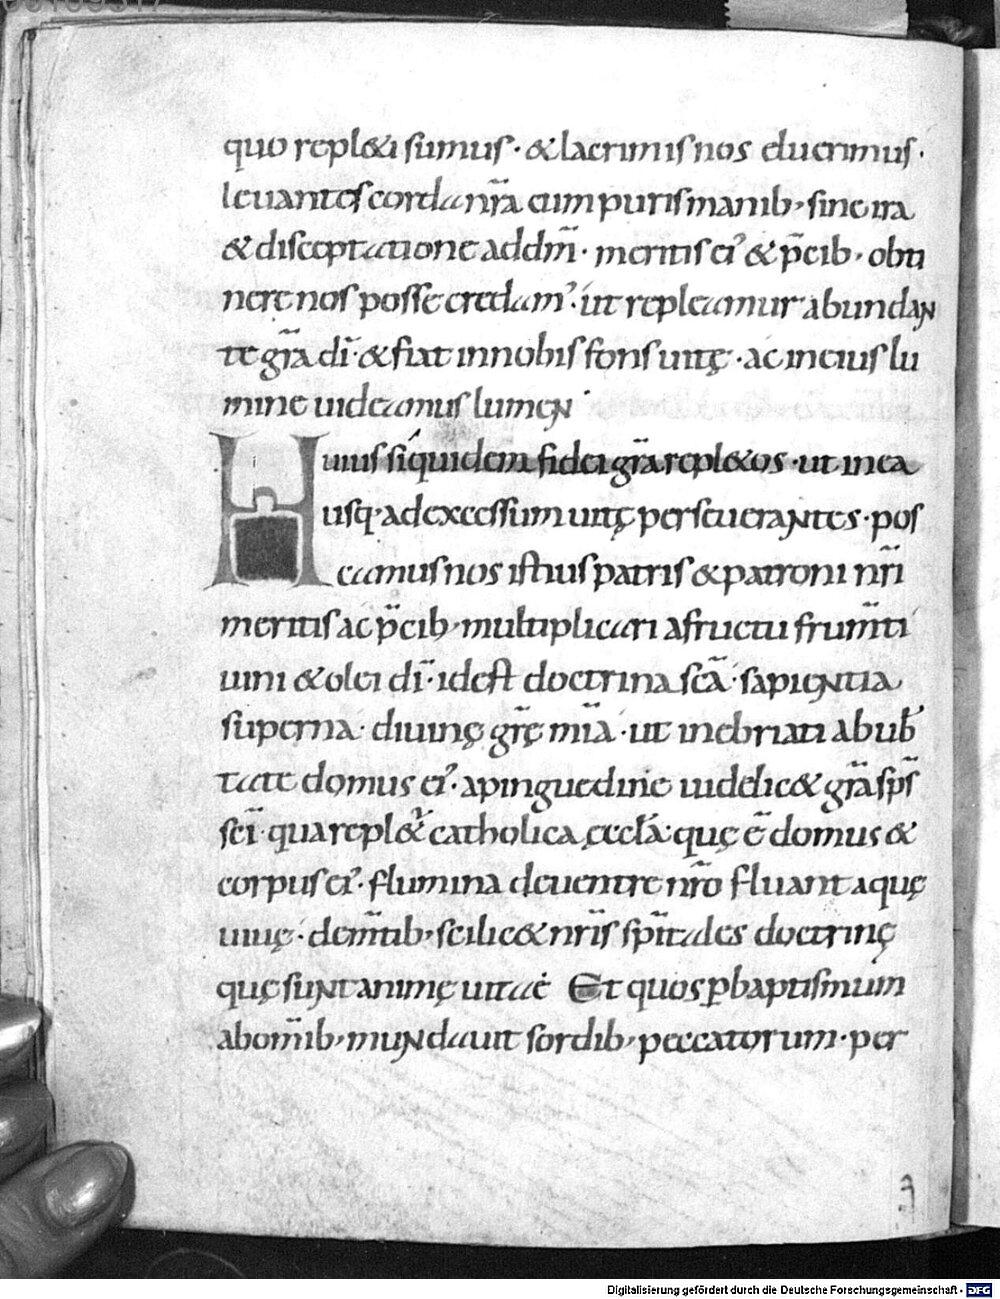 quo repl&i sumus · & lacrimis nos eluerimus ·
leuantes corda nr̄a cum puris manib; sine ira
& disceptatione ad dm̄ · meritis ei' & p̄cib; obti
nere nos posse credam' · ut repleamur abundan
te gr̄a dī · & fiat in nobis fons uitę · ac in eius lu
mine uideamus lumen ·
Huius síquidem fidei gr̄a repl&os · ut in ea
usq; ad excessum uitę perseuerantes · pos
camus nos istius patris & patroni nr̄i
meritis ac p̄cib; multiplicari a fructu frum̄ti
uini & olei dī · id est doctrina scā · sapientia
superna · diuinę gr̄ę mīa · ut inebriati ab ub̄
tate domus ei' · a pinguedine uidelic& gr̄a sp̄s
scī · qua repl&' catholica ęccła · quę ē domus &
corpus ei' · flumina de uentre nr̄o fluant aquę
uiuę · de m̄tib; scilic& nr̄is sp̄itales doctrinę
quę sunt animę uitae Et quos p baptismum
ab om̄ib; mundauit sordib; peccatorum · per
Digitalisierung gefördert durch die Deutsche Forschungsgemeinschaft - DFG